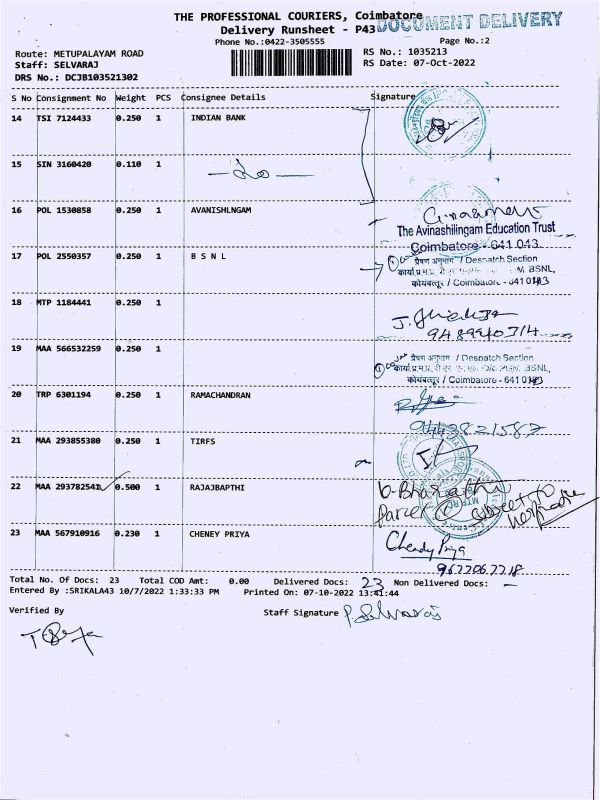 THE PROFESSIONAL COURIERS, Coimbatore
DOCUMENT DELIVERY
Delivery Runsheet - P43
Phone No.:0422-3505555
Page No.:2
Route: METUPALAYAM ROAD
RS No.: 1035213
Staff: SELVARAJ
RS Date: 07-Oct-2022
DRS No.: DCJB103521302
S No Consignment No Weight PCS Consignee Details Signature
14 TSI 7124433 0.250 1 INDIAN BANK
15 SIN 3160420 0.110 1
16 POL 1530858 0.250 1 AVANISHLNGAM
The Avinashilingam Education Trust
Coimbatore - 641 043
17 POL 2550357 0.250 1 B S N L
प्रेषण अनुभाग / Despatch Section
BSNL,
कोयंबत्तूर / Coimbatore - 641 043
18 MTP 1184441 0.250 1
9489940314
19 MAA 566532259 0.250 1
प्रेषण अनुभाग / Despatch Section
BSNL,
कोयंबत्तूर / Coimbatore - 641 043
20 TRP 6301194 0.250 1 RAMACHANDRAN
9443821587
21 MAA 293855380 0.250 1 TIRFS
22 MAA 293782541 0.500 1 RAJAJBAPTHI
b. Bharathi
Parcel subject to
23 MAA 567910916 0.230 1 CHENEY PRIYA
Priya
9622062218
Total No. Of Docs: 23 Total COD Amt: 0.00 Delivered Docs: 23 Non Delivered Docs: -
Entered By :SRIKALA43 10/7/2022 1:33:33 PM Printed On: 07-10-2022 13:41:44
Verified By
Staff Signature P. Selvaraj